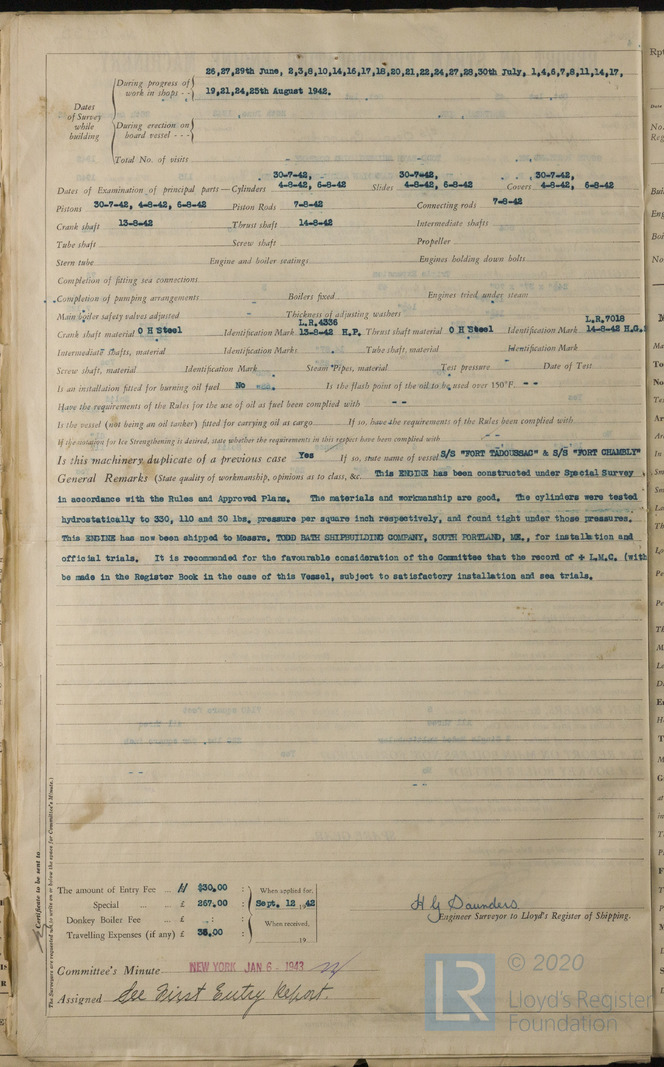 26,27,29th June, 2,3,8,10,14,16,17,18,20,21,22,24,27,28,30th July, 1,4,6,7,8,11,14,17,
19,21,24,25th August 1942.
Dates of Survey while building
During progress of work in shops - -
During erection on board vessel - - -
Total No. of visits
30-7-42, 30-7-42, 30-7-42,
Dates of Examination of principal parts—Cylinders 4-8-42, 6-8-42 Slides 4-8-42, 6-8-42 Covers 4-8-42, 6-8-42
Pistons 30-7-42, 4-8-42, 6-8-42 Piston Rods 7-8-42 Connecting rods 7-8-42
Crank shaft 13-8-42 Thrust shaft 14-8-42 Intermediate shafts
Tube shaft Screw shaft Propeller
Stern tube Engine and boiler seatings Engines holding down bolts
Completion of fitting sea connections
Completion of pumping arrangements Boilers fixed Engines tried under steam
Main boiler safety valves adjusted Thickness of adjusting washers
L.R.4336 L.R.7018
Crank shaft material O H Steel Identification Mark 13-8-42 H.P. Thrust shaft material O H Steel Identification Mark 14-8-42 H.G.
Intermediate shafts, material Identification Marks Tube shaft, material Identification Mark
Screw shaft, material Identification Mark Steam Pipes, material Test pressure Date of Test
Is an installation fitted for burning oil fuel No Is the flash point of the oil to be used over 150°F. - -
Have the requirements of the Rules for the use of oil as fuel been complied with - -
Is the vessel (not being an oil tanker) fitted for carrying oil as cargo If so, have the requirements of the Rules been complied with
If the notation for Ice Strengthening is desired, state whether the requirements in this respect have been complied with - -
Is this machinery duplicate of a previous case Yes If so, state name of vessel S/S "FORT TADOUSSAC" & S/S "FORT CHAMBLY"
General Remarks (State quality of workmanship, opinions as to class, &c. This ENGINE has been constructed under Special Survey
in accordance with the Rules and Approved Plans. The materials and workmanship are good. The cylinders were tested
hydrostatically to 330, 110 and 30 lbs. pressure per square inch respectively, and found tight under those pressures.
This ENGINE has now been shipped to Messrs. TODD BATH SHIPBUILDING COMPANY, SOUTH PORTLAND, ME., for installation and
official trials. It is recommended for the favourable consideration of the Committee that the record of + L.M.C. (with
be made in the Register Book in the case of this Vessel, subject to satisfactory installation and sea trials.
Certificate to be sent to
The Surveyors are requested not to write on or below the space for Committee's Minute.)
The amount of Entry Fee ... $30.00 : When applied for,
Special ... ... £ 267.00 : Sept. 12 1942
Donkey Boiler Fee ... £ : When received,
Travelling Expenses (if any) £ 38.00 : 19
H G Saunders
Engineer Surveyor to Lloyd's Register of Shipping.
Committee's Minute NEW YORK JAN 6 - 1943
Assigned See First Entry Report.
© 2020
LR
Lloyd's Register
Foundation